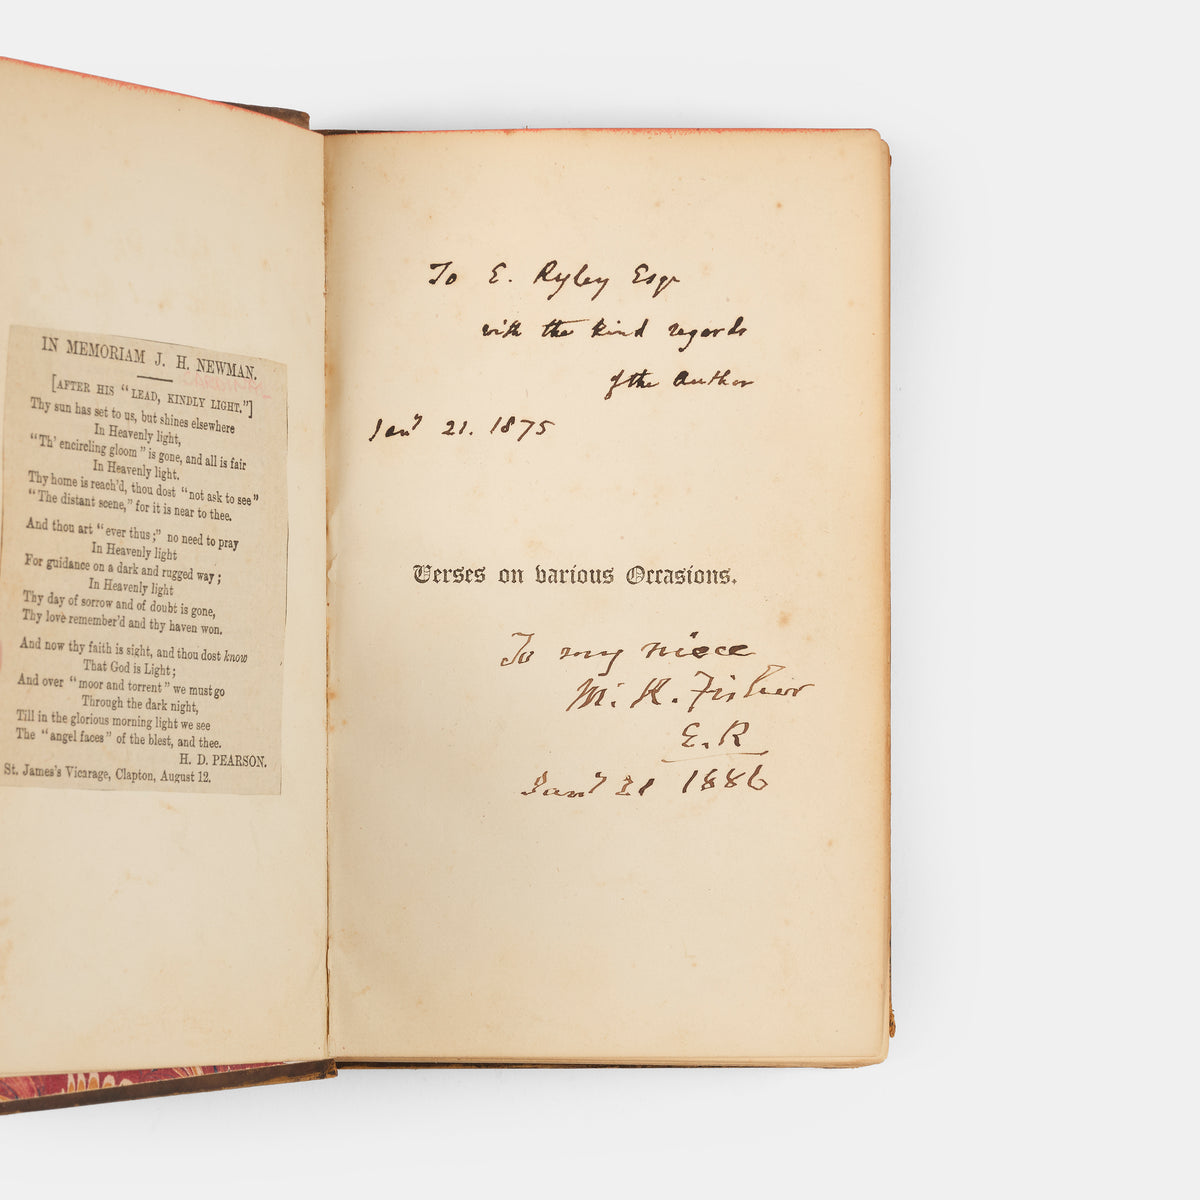 IN MEMORIAM J. H. NEWMAN.
[AFTER HIS "LEAD, KINDLY LIGHT."]
Thy sun has set to us, but shines elsewhere
In Heavenly light,
"Th' encircling gloom" is gone, and all is fair
In Heavenly light.
Thy home is reach'd, thou dost "not ask to see"
"The distant scene," for it is near to thee.
And thou art "ever thus;" no need to pray
In Heavenly light
For guidance on a dark and rugged way;
In Heavenly light
Thy day of sorrow and of doubt is gone,
Thy love remember'd and thy haven won.
And now thy faith is sight, and thou dost know
That God is Light;
And over "moor and torrent" we must go
Through the dark night,
Till in the glorious morning light we see
The "angel faces" of the blest, and thee.
H. D. PEARSON.
St. James's Vicarage, Clapton, August 12.
To E. Ryley Esqr
with the kind regards
of the Author
Jany 21. 1875
Verses on various Occasions.
To my niece
M. K. Fisher
E. R
Jany 21 1886